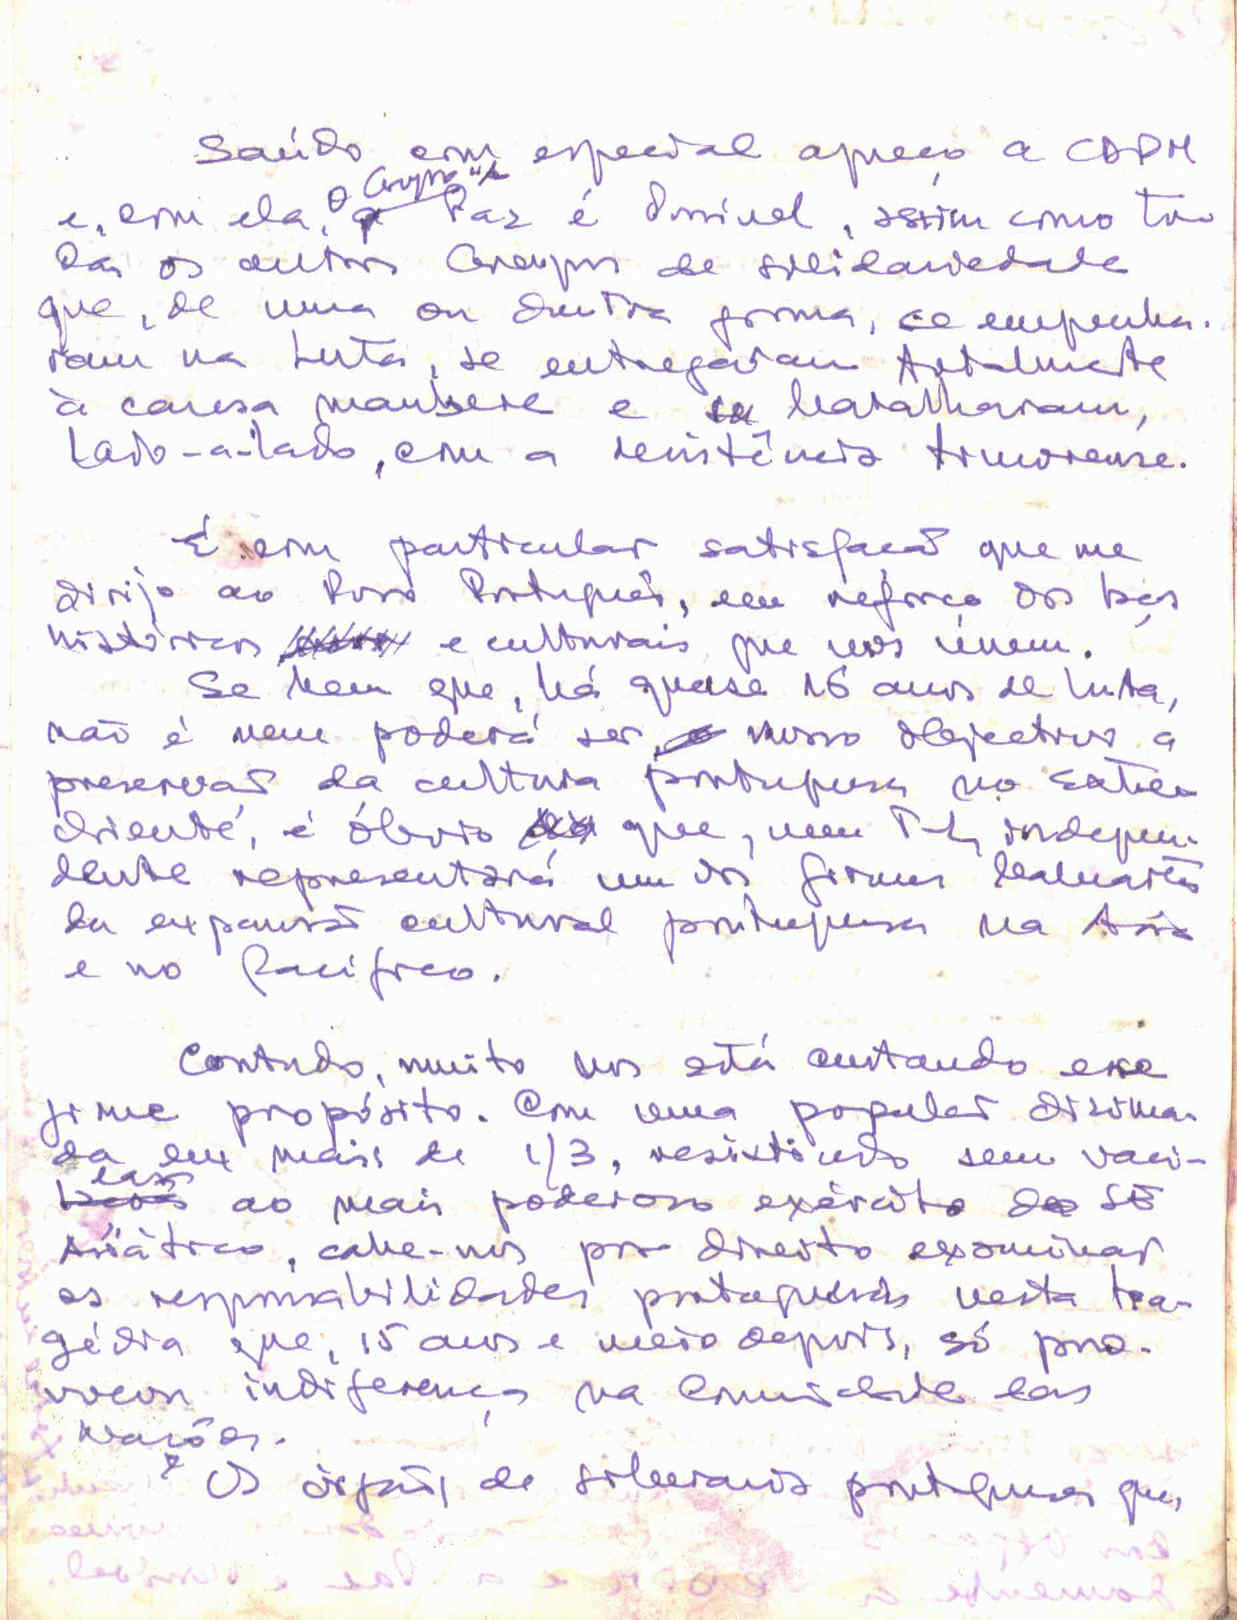 Saúdo com especial apreço a CDPM
e, com ela, o Grupo "A Paz é Possível, assim como to-
dos os outros Grupos de solidariedade
que, de uma ou doutra forma, se empenha-
ram na luta, se entregaram totalmente
à causa maubere e batalharam,
lado-a-lado, com a resistência timorense.
É com particular satisfação que me
dirijo ao Povo Português, em reforço dos laços
históricos e culturais que nos unem.
Se bem que, há quase 16 anos de luta,
não é nem poderá ser nosso objectivo a
preservação da cultura portuguesa no Extremo
Oriente, é óbvio que, um T-L indepen-
dente representará um dos firmes baluartes
da expansão cultural portuguesa na Ásia
e no Pacífico.
Contudo, muito nos está custando esse
firme propósito. Com uma população dizima-
da em mais de 1/3, resistindo sem vaci-
lações ao mais poderoso exército do SE
Asiático, cabe-nos por direito examinar
as responsabilidades portuguesas nesta tra-
gédia que, 15 anos e meio depois, só pro-
vocou indiferença na Comunidade das
Nações.
Os órgãos de soberania portugueses que,